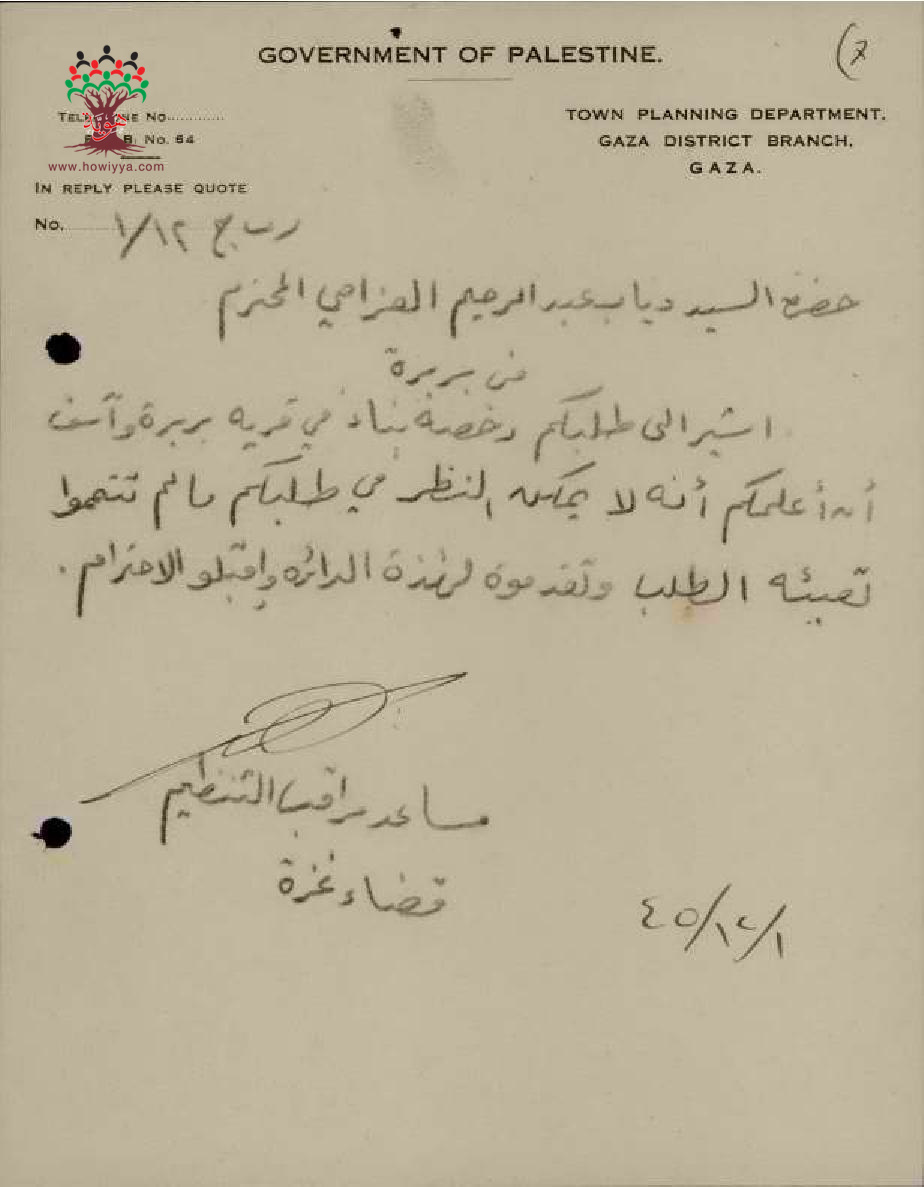 GOVERNMENT OF PALESTINE.
(7
TELEPHONE No.............
P.O.B. No. 64
www.howiyya.com
TOWN PLANNING DEPARTMENT,
GAZA DISTRICT BRANCH,
GAZA.
IN REPLY PLEASE QUOTE
No. ر ب ج ١/١٢
حضرة السيد دياب عبد الرحيم العزامي المحترم
من بربرة
اشير الى طلبكم رخصة بناء في قريه بربرة وآسف
أن أعلمكم أنه لا يمكن النظر في طلبكم ما لم تتموا
تعبئه الطلب وتقدموة لهذة الدائره واقبلو الاحترام.
مساعد مراقب التنظيم
قضاء غزة
٤٥/١٢/١